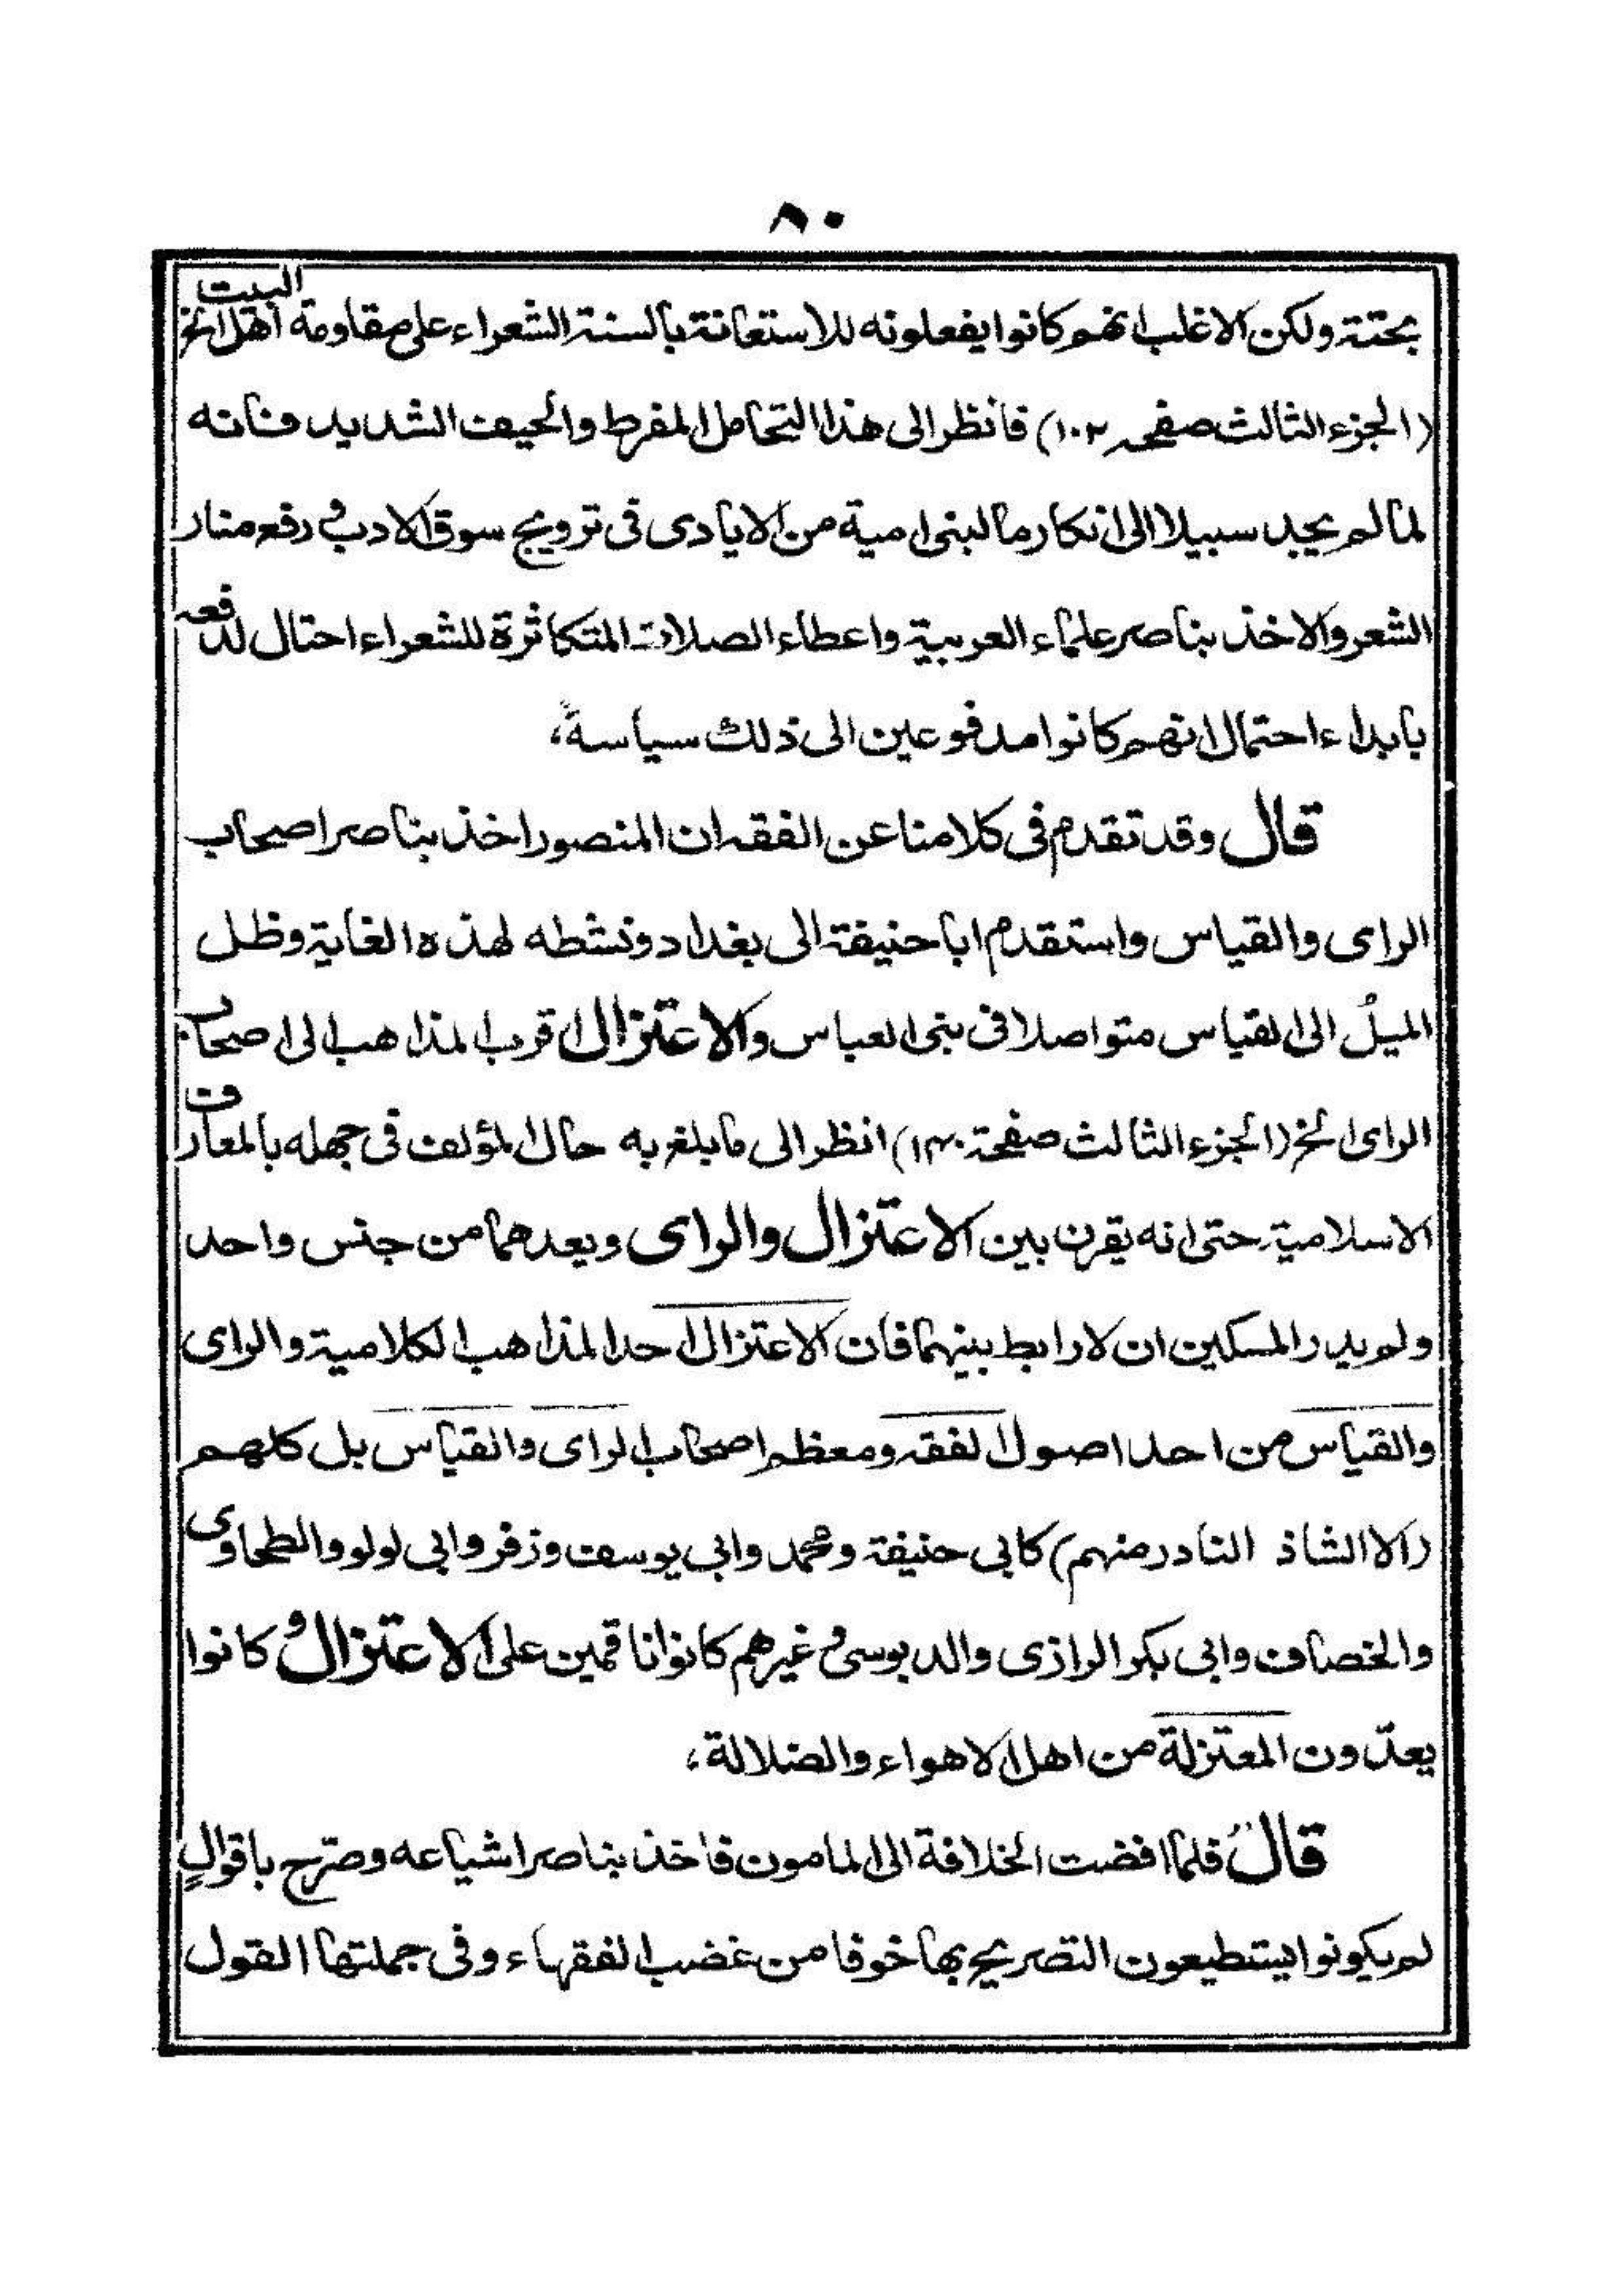 ٨٠
بحتة ولكن الاغلب انهم كانوا يفعلونه للاستعانة بالسنة الشعراء على مقاومة اهل البيت الخ
(الجزء الثالث صفحه ١٠٢) فانظر الى هذا التحامل المفرط والحيف الشديد فانه
لما لم يجد سبيلا الى انكار ما لبنى امية من الايادى فى ترويج سوق الادب فى رفع منار
الشعر والاخذ بناصر علماء العربية واعطاء الصلات المتكاثرة للشعراء احتال لدفعه
بابداء احتمال انهم كانوا مدفوعين الى ذلك سياسةً،
قال وقد تقدم فى كلامنا عن الفقه ان المنصور اخذ بناصر اصحاب
الراى والقياس واستقدم ابا حنيفة الى بغداد ونشطه لهذه الغاية وظل
الميلُ الى القياس متواصلا فى بنى العباس والاعتزال اقرب المذاهب الى اصحاب
الراى الخ (الجزء الثالث صفحة ١٤٠) انظر الى ما بلغ به حال المؤلف فى جهله بالمعارف
الاسلامية حتى انه يقرن بين الاعتزال والراى ويعدهما من جنس واحد
ولم يدر المسكين ان لا رابط بينهما فان الاعتزال احد المذاهب الكلامية والراى
والقياس من احد اصول الفقه ومعظم اصحاب الراى والقياس بل كلهم
(الا الشاذ النادر منهم) كابى حنيفة ومحمد وابى يوسف وزفر وابى لولو والطحاوى
والخصاف وابى بكر الرازى والدبوسى وغيرهم كانوا ناقمين على الاعتزال و كانوا
يعدّون المعتزلة من اهل الاهواء والضلالة،
قال فلما افضت الخلافة الى المامون فاخذ بناصر اشياعه وصرّح باقوالٍ
لم يكونوا يستطيعون التصريح بها خوفا من غضب الفقهاء وفى جملتها القول